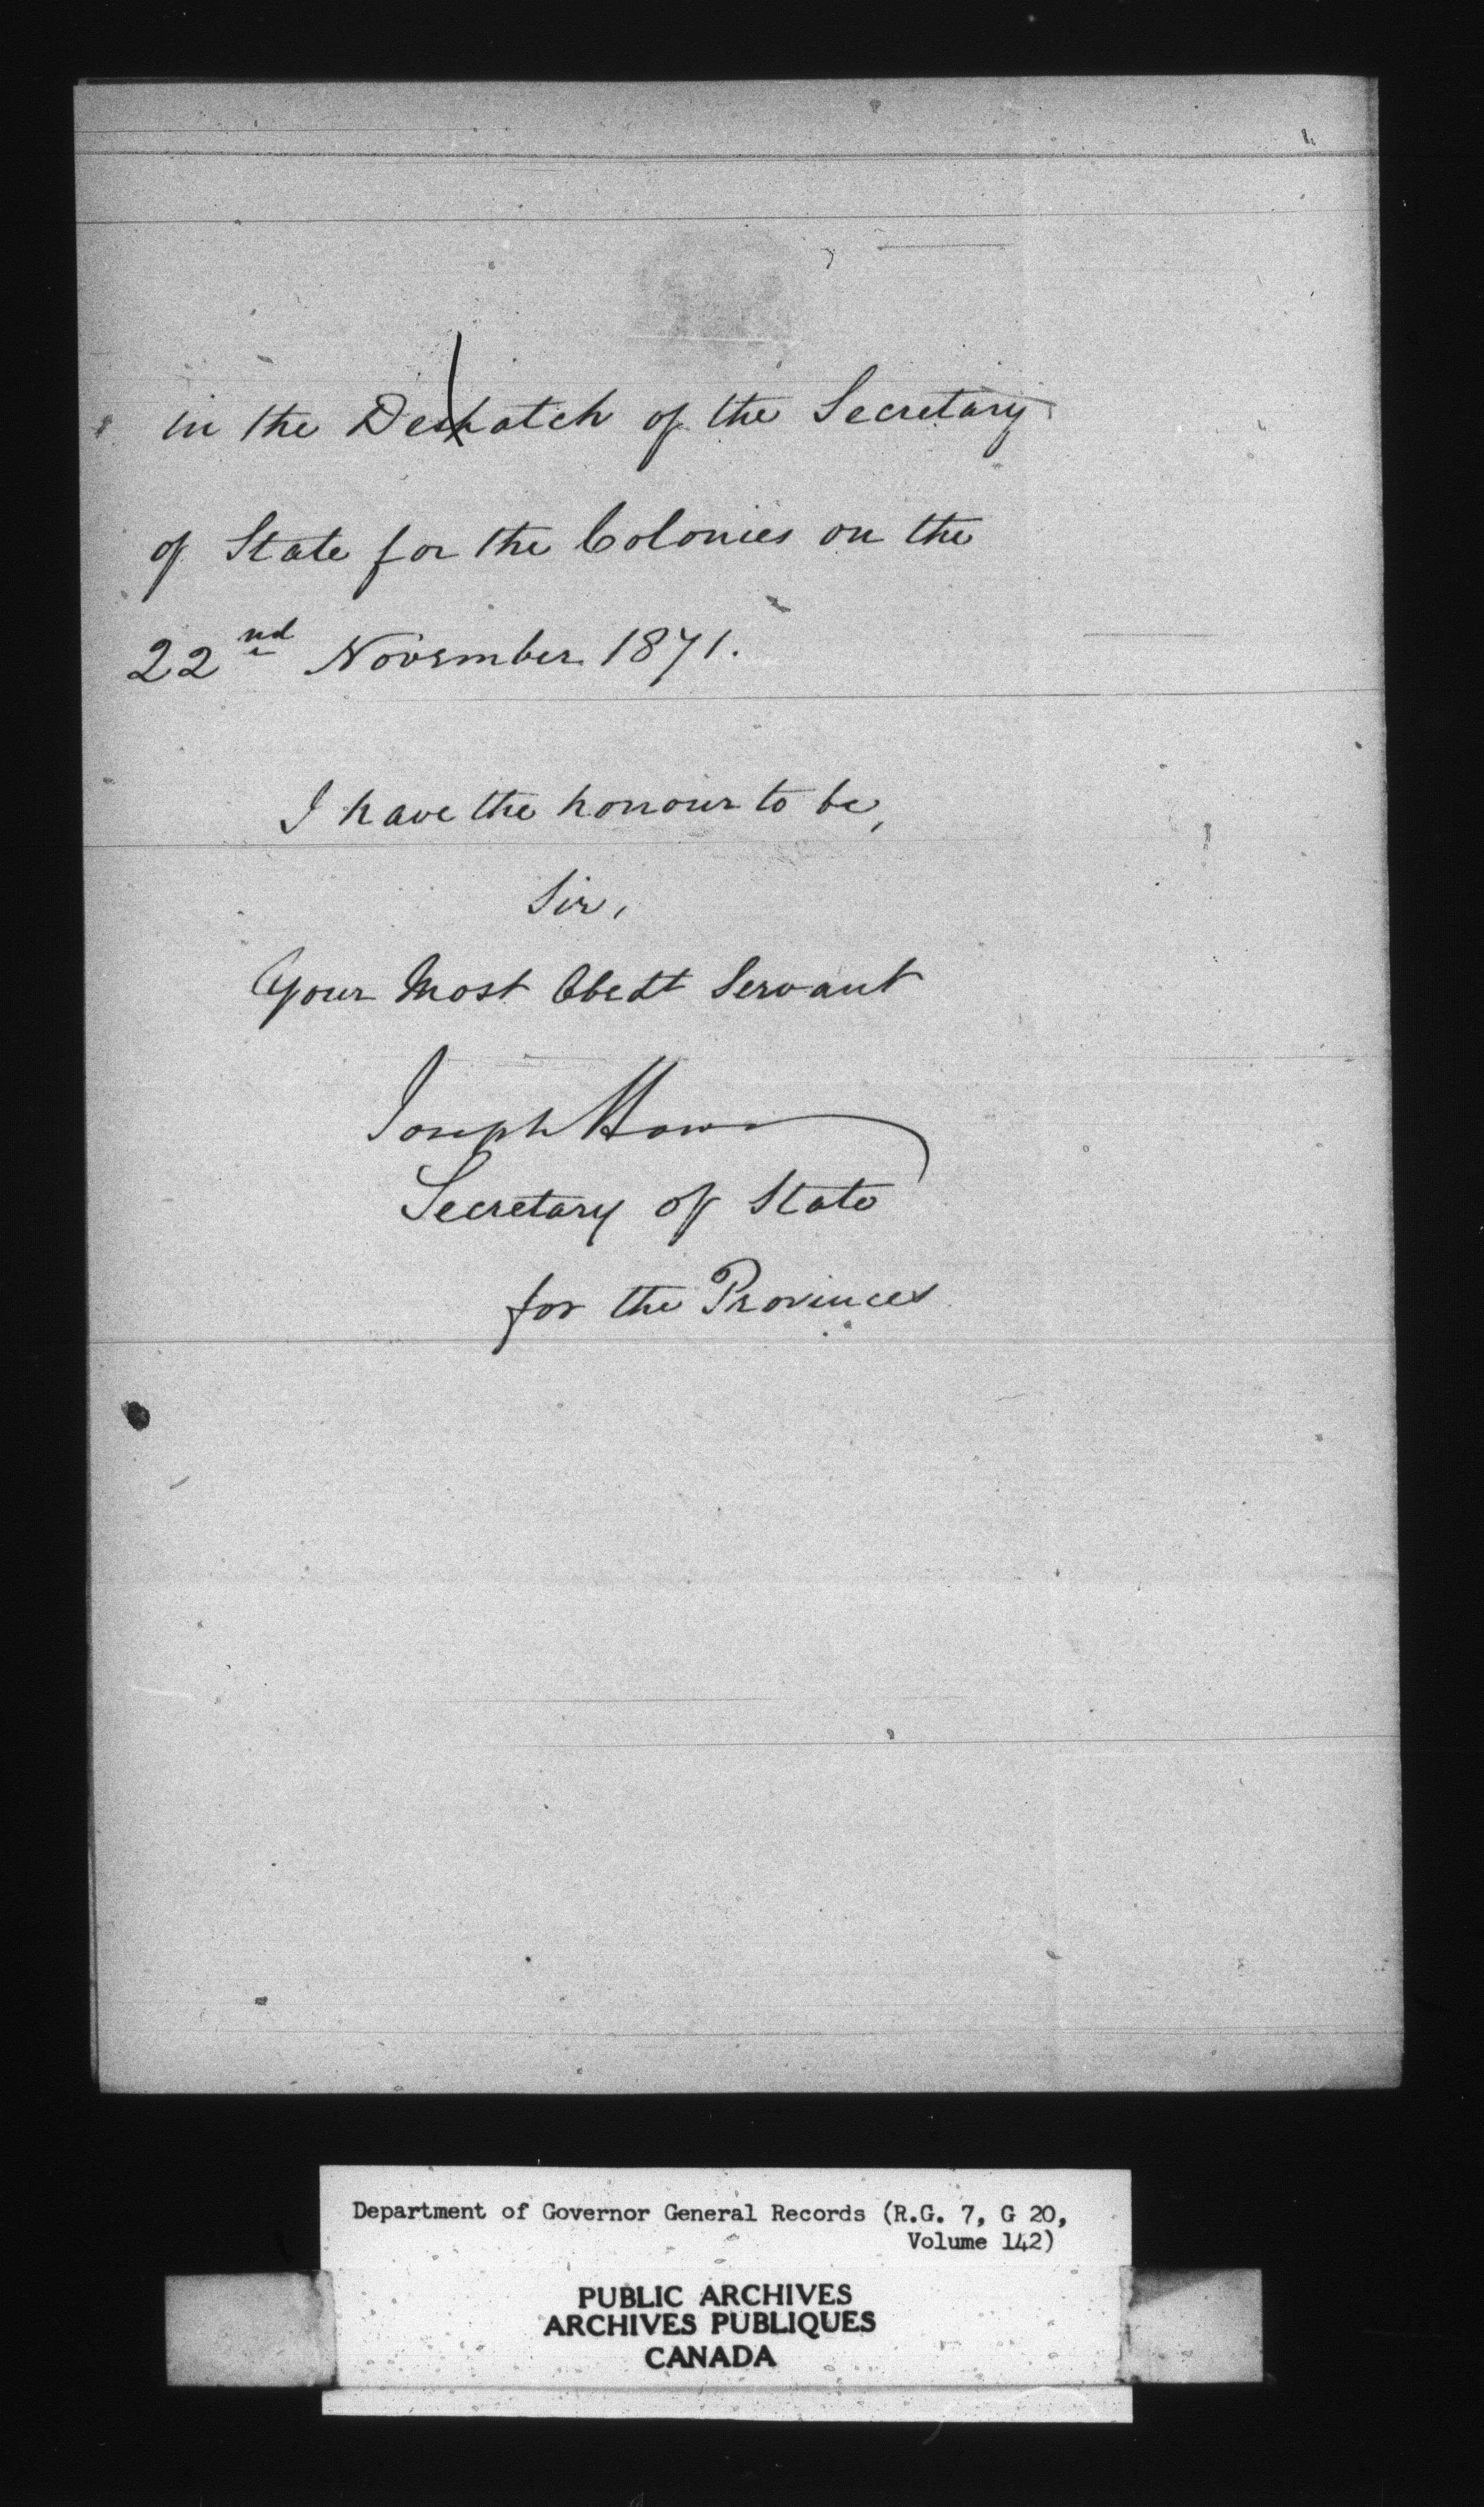 in the Despatch of the Secretary
of State for the Colonies on the
22nd November 1871.
I have the honour to be,
Sir,
Your Most Obedt Servant
Joseph Howe
Secretary of State
for the Provinces
Department of Governor General Records (R.G. 7, G 20,
Volume 142)
PUBLIC ARCHIVES
ARCHIVES PUBLIQUES
CANADA